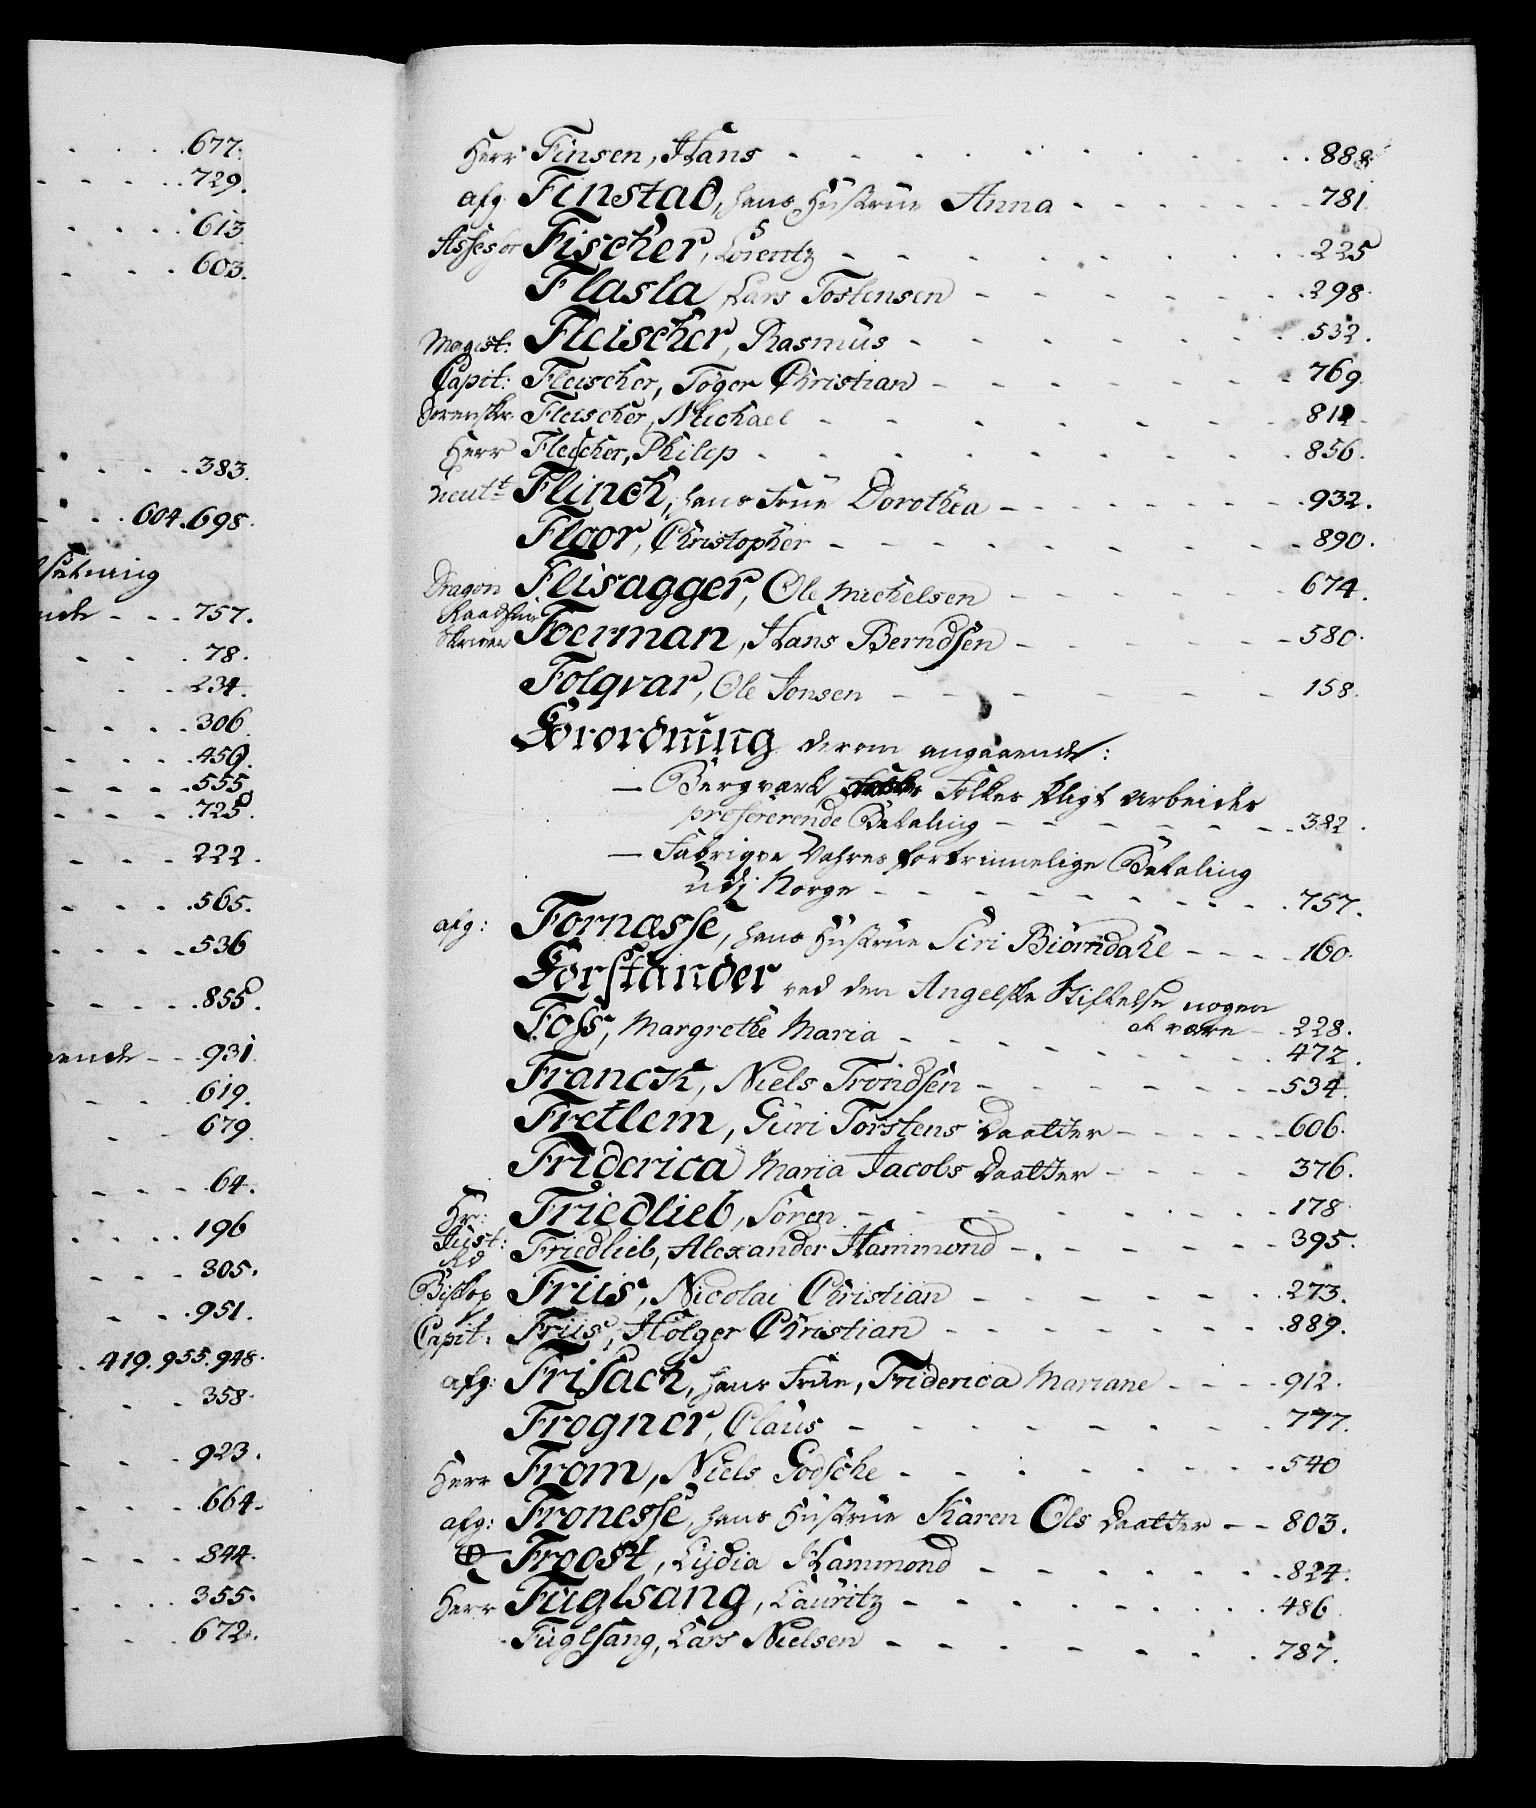 677.
729.
613
603.
383.
604.698.
757.
78.
234.
306
459.
555.
725.
222.
565.
536
855.
931
619.
679
64.
196
305.
951.
419.955.948.
358.
923.
664.
844.
355.
672.
Herr Finsen, Hans - - - 888
afg Finstad, hans Hustrue Anna - - - 781
Assessor Fischer, Lorentz - - - 225
Flasla, Lars Tostensen - - - 298.
Magist: Fleischer, Rasmus - - - 532.
Capit: Fleischer, Töger Christian - - - 769
Fleischer, Michael - - - 812
Herr Fleischer, Philip - - - 856.
Lieutt Flinch, hans Frue Dorothea - - - 932.
Floor, Christopher - - - 890.
Dragon Flisagger, Ole Michelsen - - - 674.
Raadstue
Skriver Foerman, Hans Berndsen - - - 580.
Folqvar, Ole Jonsen - - - 158.
Forordning derom angaaende:
— Bergverk Folkes Arbeides
præfererende Betaling - - - 382.
— Fabriqve Vahres fortrinnelige Betaling
udj Norge - - - 757.
afg: Fornæsse, hans Hustrue Siri Biörndahl - - - 160.
Forstander ved den Angelske Stiftelse nogen
at være - - 228.
Foss, Margrethe Maria - - - 472.
Franck, Niels Trondsen - - - 534.
Fretlem, Guri Torstens Daatter - - - 606.
Friderica Maria Jacobs Daatter - - - 376.
Hr: Friedlieb, Sören - - - 178
Just:
Rd Friedlieb, Alexander Hammond - - - 395.
Biskop Friis, Nicolai Christian - - - 273.
Capit: Friis, Holger Christian - - - 889.
afg: Frisach, hans Frue, Friderica Mariane - - - 912.
Frogner, Claus - - - 777.
Herr From, Niels Godsche - - - 540
afg: Fronesse, hans Hustrue Karen Ols Daatter - - 803.
Froost, Lydia Hammond - - - 824.
Herr Fuglsang, Lauritz - - - 486.
Fuglsang, Lars Nielsen - - - 787.